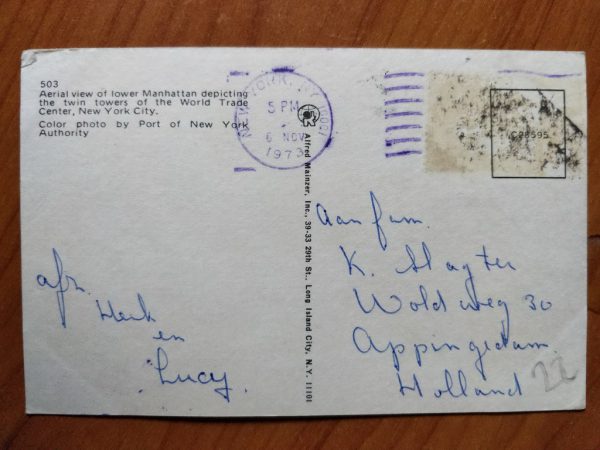 503
Aerial view of lower Manhattan depicting
the twin towers of the World Trade
Center, New York City.
Color photo by Port of New York
Authority
NEW YORK, NY
5 PM
6 NOV
1973
C28595
Alfred Mainzer, Inc., 39-33 29th St., Long Island City, N.Y. 11101
Aan fam.
K. Slagter
Woldweg 30
Appingedam
Holland
22
afz.
Henk
en
Lucy.